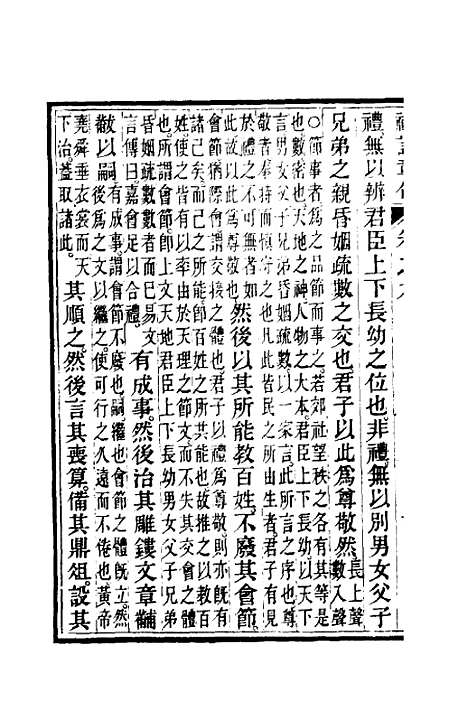 禮無以辨君臣上下長幼之位也非禮無以別男女父子
兄弟之親昏姻疏數之交也君子以此爲尊敬然長上聲數入聲
○節事者爲之品節而事之若郊社望秩之各有其等是
也數密也天地之神人物之大本君臣上下長幼以天下
言男女父子兄弟昏姻疏數以一家言此所言之序也尊
敬者奉持而慎守之也凡此皆民之所由生者君子有見
於禮之不可無者如
此故以此爲尊敬也然後以其所能教百姓不廢其會節
會節猶際會交接之體也君子以禮爲尊敬則亦既有
諸己矣而己之所能節百姓之所共能也故推之以教百
姓使之皆有以率由於天理之節文而不失其交會之體
也所謂會節即上文天地君臣上下長幼男女父子兄弟
昏姻疏數者而已易文
言傳曰嘉會足以合禮有成事然後治其雕鏤文章黼
黻以嗣有成事謂會節不廢也嗣繼也會節之體既立然
後爲之文以繼之使可行之久遠而不倦也黃帝
堯舜垂衣裳而天
下治蓋取諸此其順之然後言其喪算備其鼎俎設其